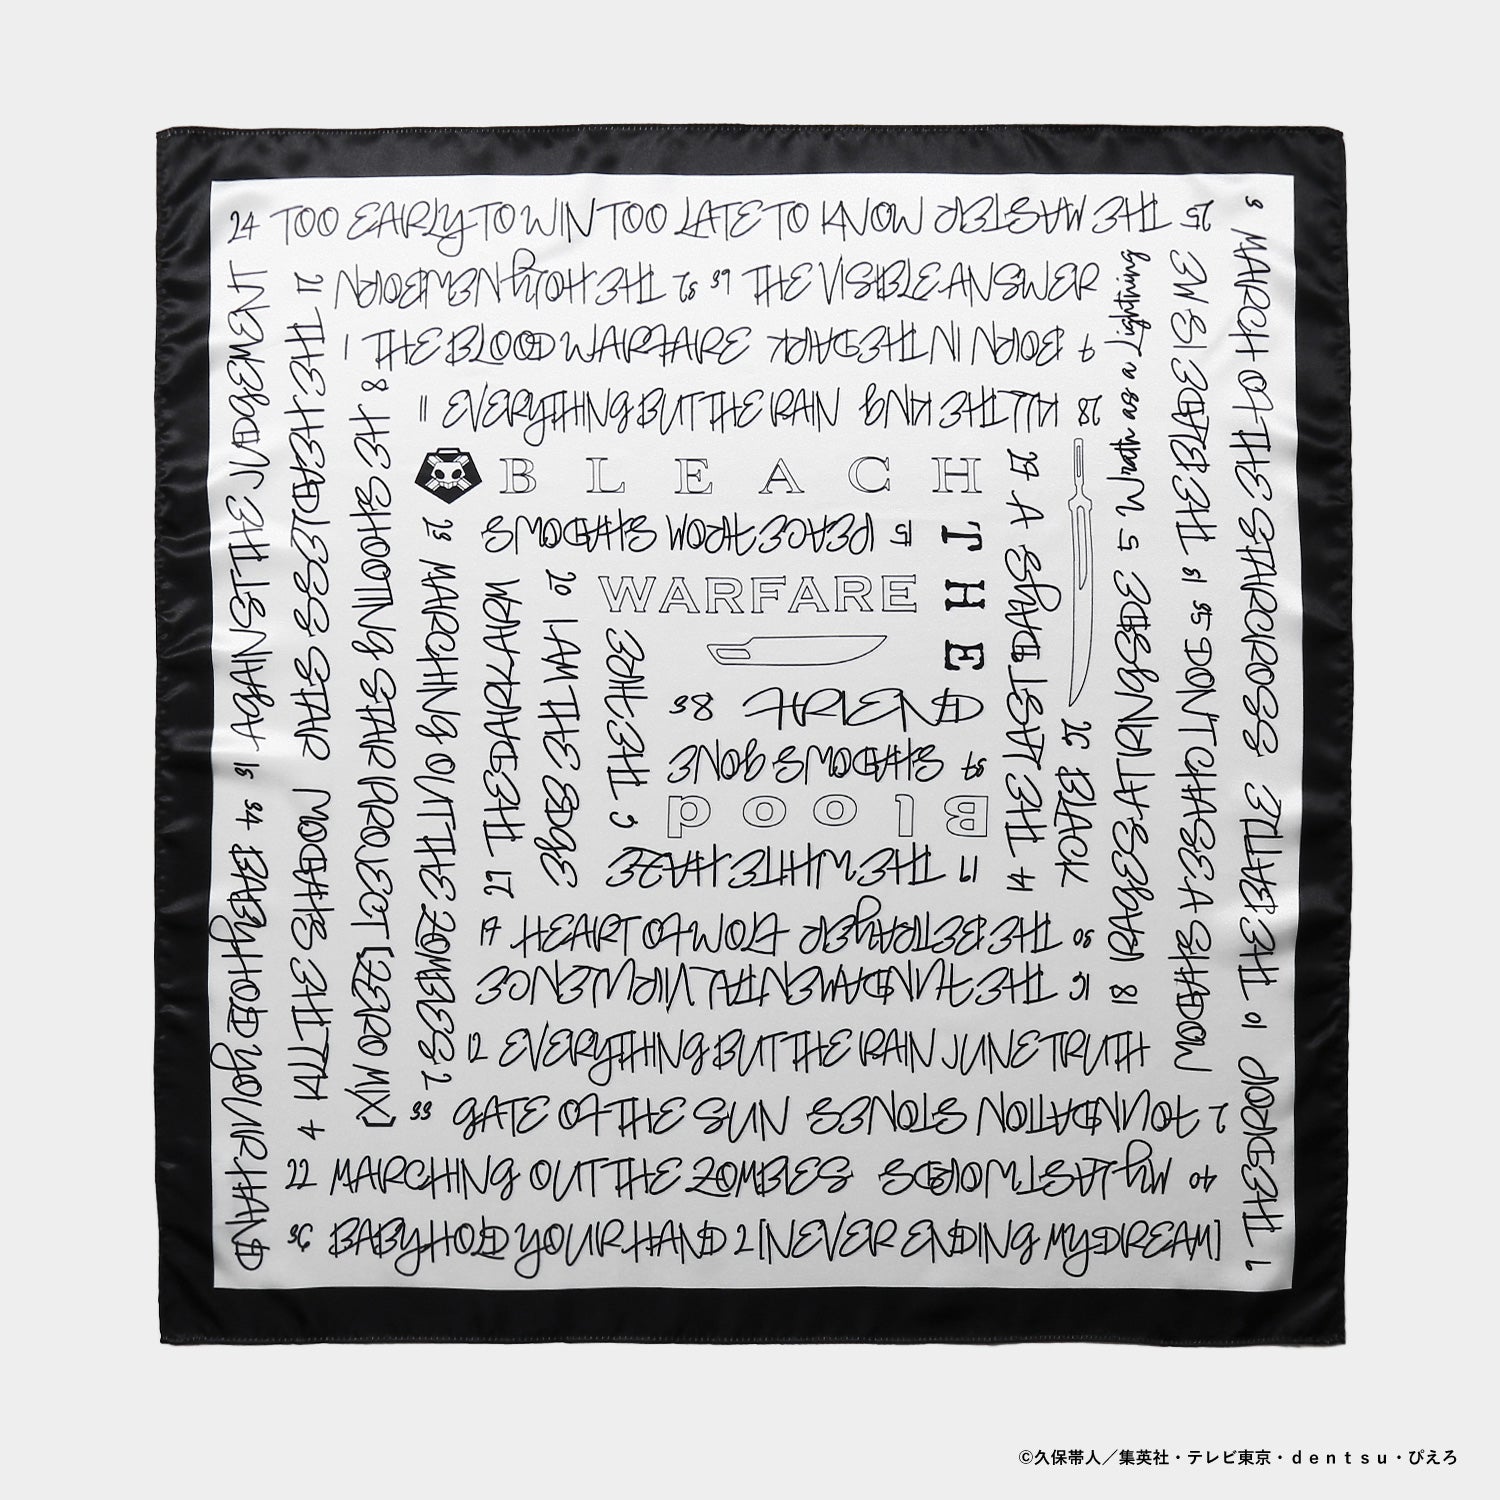 24 TOO EARLY TO WIN TOO LATE TO KNOW
25 THE MASTER
3 MARCH OF THE STARCROSS
32 THE HOLY NEWBORN
39 THE VISIBLE ANSWER
1 THE BLOOD WARFARE
9 BORN IN THE DARK
11 EVERYTHING BUT THE RAIN
28 KILL THE KING
BLEACH
THE
Blood
WARFARE
15 PEACE FROM SHADOWS
38 FRIEND
37 SHADOWS GONE
17 THE WHITE HAZE
19 HEART OF WOLF
30 THE BETRAYER
12 EVERYTHING BUT THE RAIN JUNE TRUTH
33 GATE OF THE SUN
7 FOUNDATION STONES
22 MARCHING OUT THE ZOMBIES
40 MY LAST WORDS
36 BABY HOLD YOUR HAND 2 [NEVER ENDING MY DREAM]
34 BABY, HOLD YOUR HAND
16 AGAINST THE JUDGEMENT
4 KILL THE SHADOW
8 THE SHOOTING STAR PROJECT [ZERO MIX]
23 MARCHING OUT THE ZOMBIES 2
27 THE DARK ARM
20 I AM THE EDGE
26 BLACK
18 RAGES AT RINGSIDE
5 Wrath as a Lightning
35 DON'T CHASE A SHADOW
10 THE BATTLE
6 THE DROP
©久保帯人／集英社・テレビ東京・ｄｅｎｔｓｕ・ぴえろ